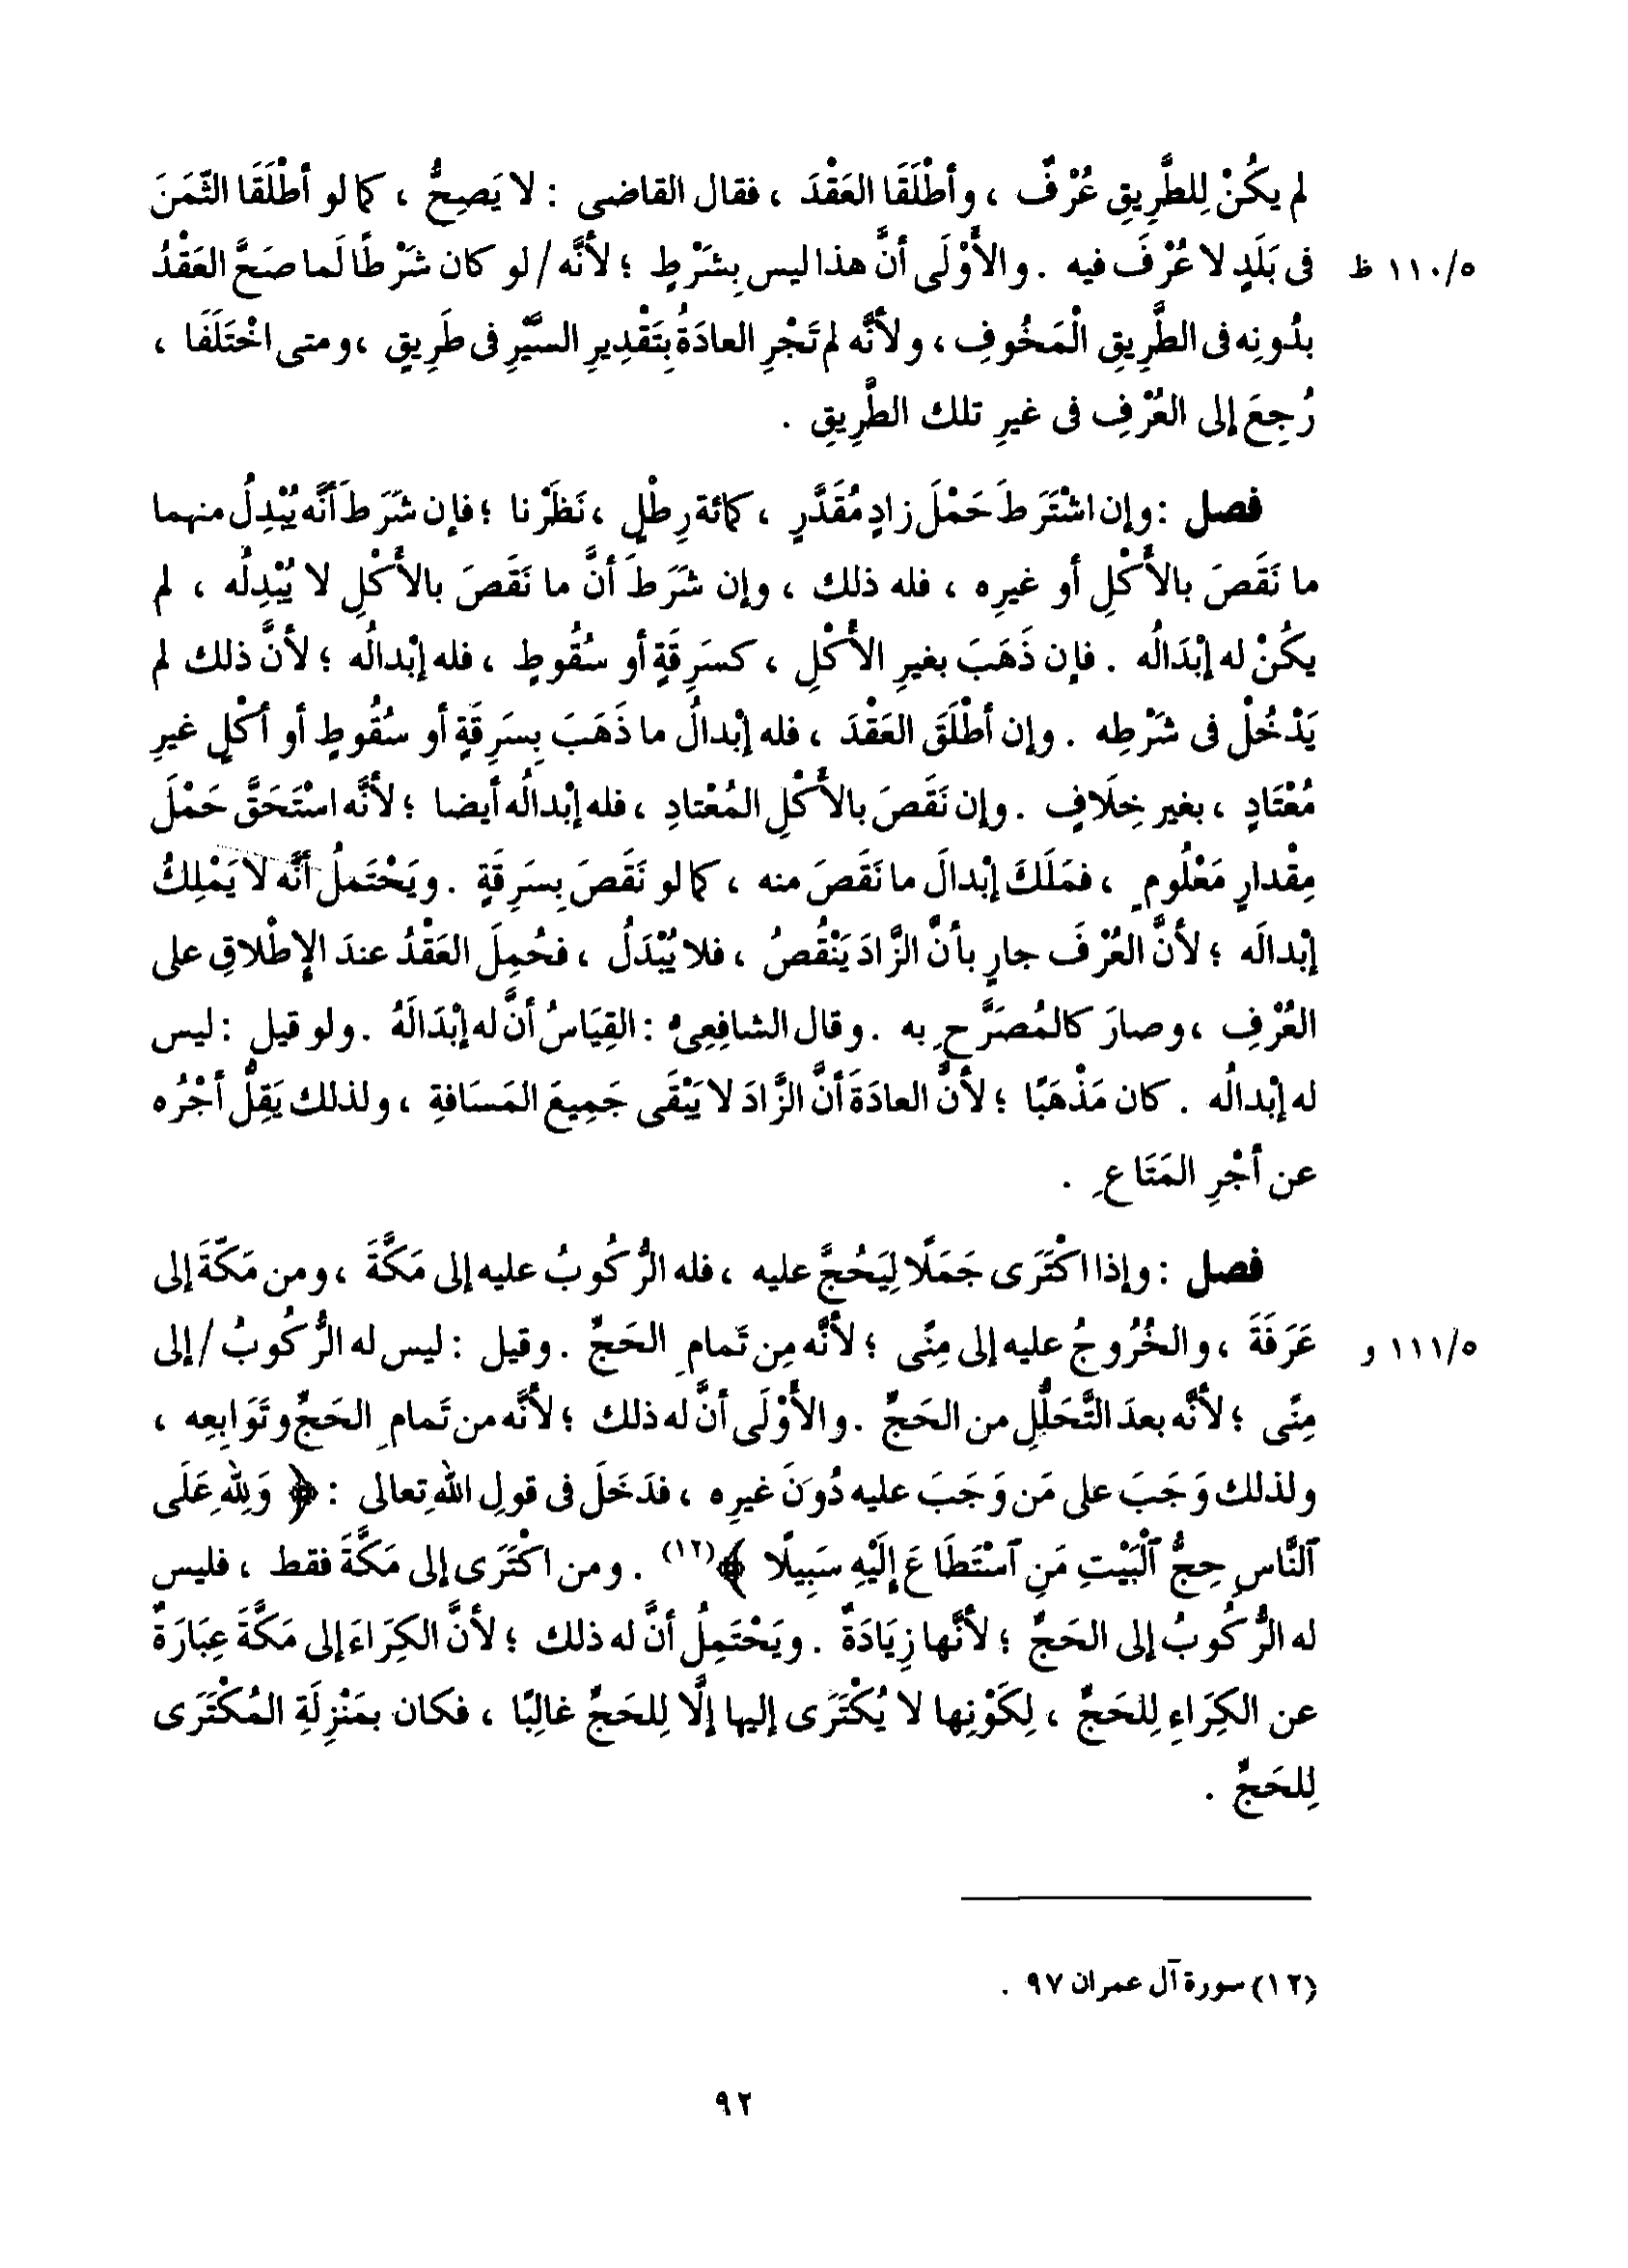 لم يكُنْ لِلطَّرِيقِ عُرْفٌ ، وأطْلَقَا العَقْدَ ، فقال القاضى : لا يَصِحُّ ، كما لو أطْلَقَا الثَّمَنَ
٥/١١٠ ظ فى بَلَدٍ لا عُرْفَ فيه . والأَوْلَى أنَّ هذا ليس بِشَرْطٍ ؛ لأنَّه / لو كان شَرْطًا لَما صَحَّ العَقْدُ
بدُونِه فى الطَّرِيقِ الْمَخُوفِ ، ولأنَّه لم تَجْرِ العادَةُ بِتَقْدِيرِ السَّيْرِ فى طَرِيقٍ ، ومتى اخْتَلَفَا ،
رُجِعَ إلى العُرْفِ فى غيرِ تلك الطَّرِيقِ .
فصل : وإن اشْتَرَطَ حَمْلَ زادٍ مُقَدَّرٍ ، كمائة رِطْلٍ ، نَظَرْنا ؛ فإن شَرَطَ أنَّه يُبْدِلُ منهما
ما نَقَصَ بالأَكْلِ أو غيرِه ، فله ذلك ، وإن شَرَطَ أنَّ ما نَقَصَ بالأَكْلِ لا يُبْدِلُه ، لم
يكُنْ له إبْدَالُه . فإن ذَهَبَ بغيرِ الأَكْلِ ، كسَرِقَةٍ أو سُقُوطٍ ، فله إبْدالُه ؛ لأنَّ ذلك لم
يَدْخُلْ فى شَرْطِه . وإن أطْلَقَ العَقْدَ ، فله إبْدالُ ما ذَهَبَ بِسَرِقَةٍ أو سُقُوطٍ أو أكْلٍ غيرِ
مُعْتَادٍ ، بغير خِلَافٍ . وإن نَقَصَ بالأَكْلِ المُعْتادِ ، فله إبْدالُه أيضا ؛ لأنَّه اسْتَحَقَّ حَمْلَ
مِقْدارٍ مَعْلُومٍ ، فمَلَكَ إبْدالَ ما نَقَصَ منه ، كما لو نَقَصَ بِسَرِقَةٍ . ويَحْتَمِلُ أنَّه لا يَمْلِكُ
إبْدالَه ؛ لأنَّ العُرْفَ جارٍ بأنَّ الزَّادَ يَنْقُصُ ، فلا يُبْدَلُ ، فحُمِلَ العَقْدُ عندَ الإِطْلاقِ على
العُرْفِ ، وصارَ كالمُصَرَّحِ به . وقال الشافِعِىُّ : القِيَاسُ أنَّ له إبْدَالَهُ . ولو قيل : ليس
له إبْدالُه . كان مَذْهَبًا ؛ لأنَّ العادَةَ أنَّ الزَّادَ لا يَبْقَى جَمِيعَ المَسَافةِ ، ولذلك يَقِلُّ أجْرُه
عن أجْرِ المَتَاعِ .
فصل : وإذا اكْتَرَى جَمَلًا لِيَحُجَّ عليه ، فله الرُّكُوبُ عليه إلى مَكَّةَ ، ومن مَكَّةَ إلى
٥/١١١ و عَرَفَةَ ، والخُرُوجُ عليه إلى مِنًى ؛ لأنَّه مِن تَمامِ الحَجِّ . وقيل : ليس له الرُّكُوبُ / إلى
مِنًى ؛ لأنَّه بعدَ التَّحَلُّلِ من الحَجِّ . والأَوْلَى أنَّ له ذلك ؛ لأنَّه من تَمامِ الحَجِّ وتَوَابِعِه ،
ولذلك وَجَبَ على مَن وَجَبَ عليه دُونَ غيرِه ، فدَخَلَ فى قولِ اللهِ تعالى : ﴿ وَلِلَّهِ عَلَى
ٱلنَّاسِ حِجُّ ٱلْبَيْتِ مَنِ ٱسْتَطَاعَ إِلَيْهِ سَبِيلًا ﴾(١٢) . ومن اكْتَرَى إلى مَكَّةَ فقط ، فليس
له الرُّكُوبُ إلى الحَجِّ ؛ لأنَّها زِيَادَةٌ . ويَحْتَمِلُ أنَّ له ذلك ؛ لأنَّ الكِرَاءَ إلى مَكَّةَ عِبَارَةٌ
عن الكِرَاءِ لِلحَجِّ ، لِكَوْنِها لا يُكْتَرَى إليها إلَّا لِلحَجِّ غالِبًا ، فكان بمَنْزِلَةِ المُكْتَرَى
لِلحَجِّ .
(١٢) سورة آل عمران ٩٧ .
٩٢